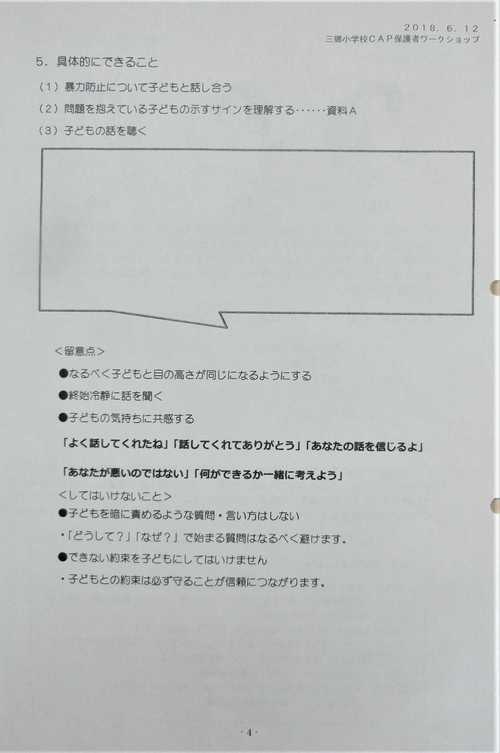 2018.6.12
三郷小学校CAP保護者ワークショップ
5．具体的にできること
（1）暴力防止について子どもと話し合う
（2）問題を抱えている子どもの示すサインを理解する……資料A
（3）子どもの話を聴く
＜留意点＞
●なるべく子どもと目の高さが同じになるようにする
●終始冷静に話を聞く
●子どもの気持ちに共感する
「よく話してくれたね」「話してくれてありがとう」「あなたの話を信じるよ」
「あなたが悪いのではない」「何ができるか一緒に考えよう」
＜してはいけないこと＞
●子どもを暗に責めるような質問・言い方はしない
・「どうして？」「なぜ？」で始まる質問はなるべく避けます。
●できない約束を子どもにしてはいけません
・子どもとの約束は必ず守ることが信頼につながります。
・4・